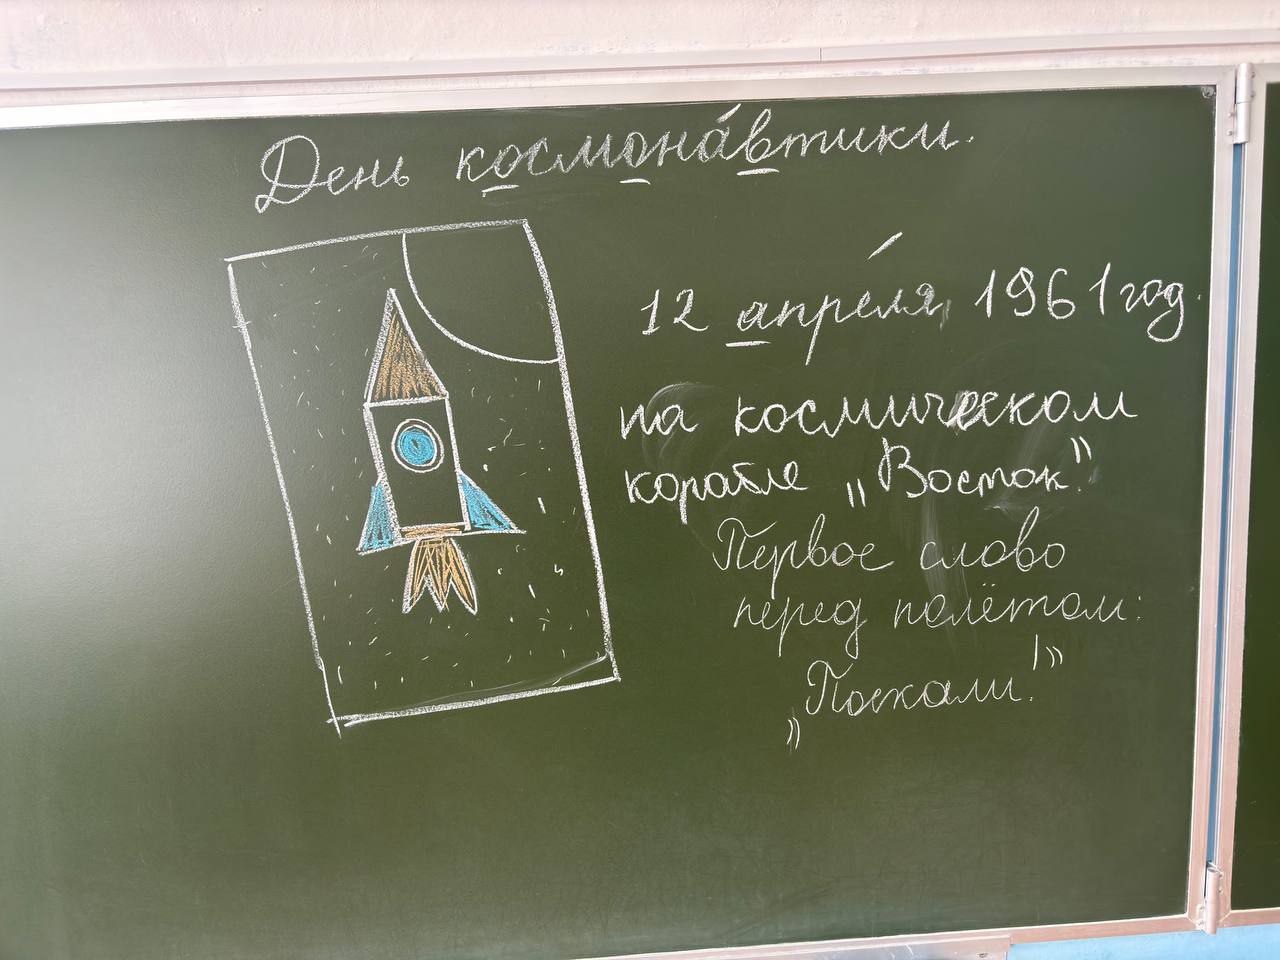 День космона́втики.
12 апре́ля, 1961 год.
на космическом
корабле „Восток."
Первое слово
перед полётом:
„Поехали!"